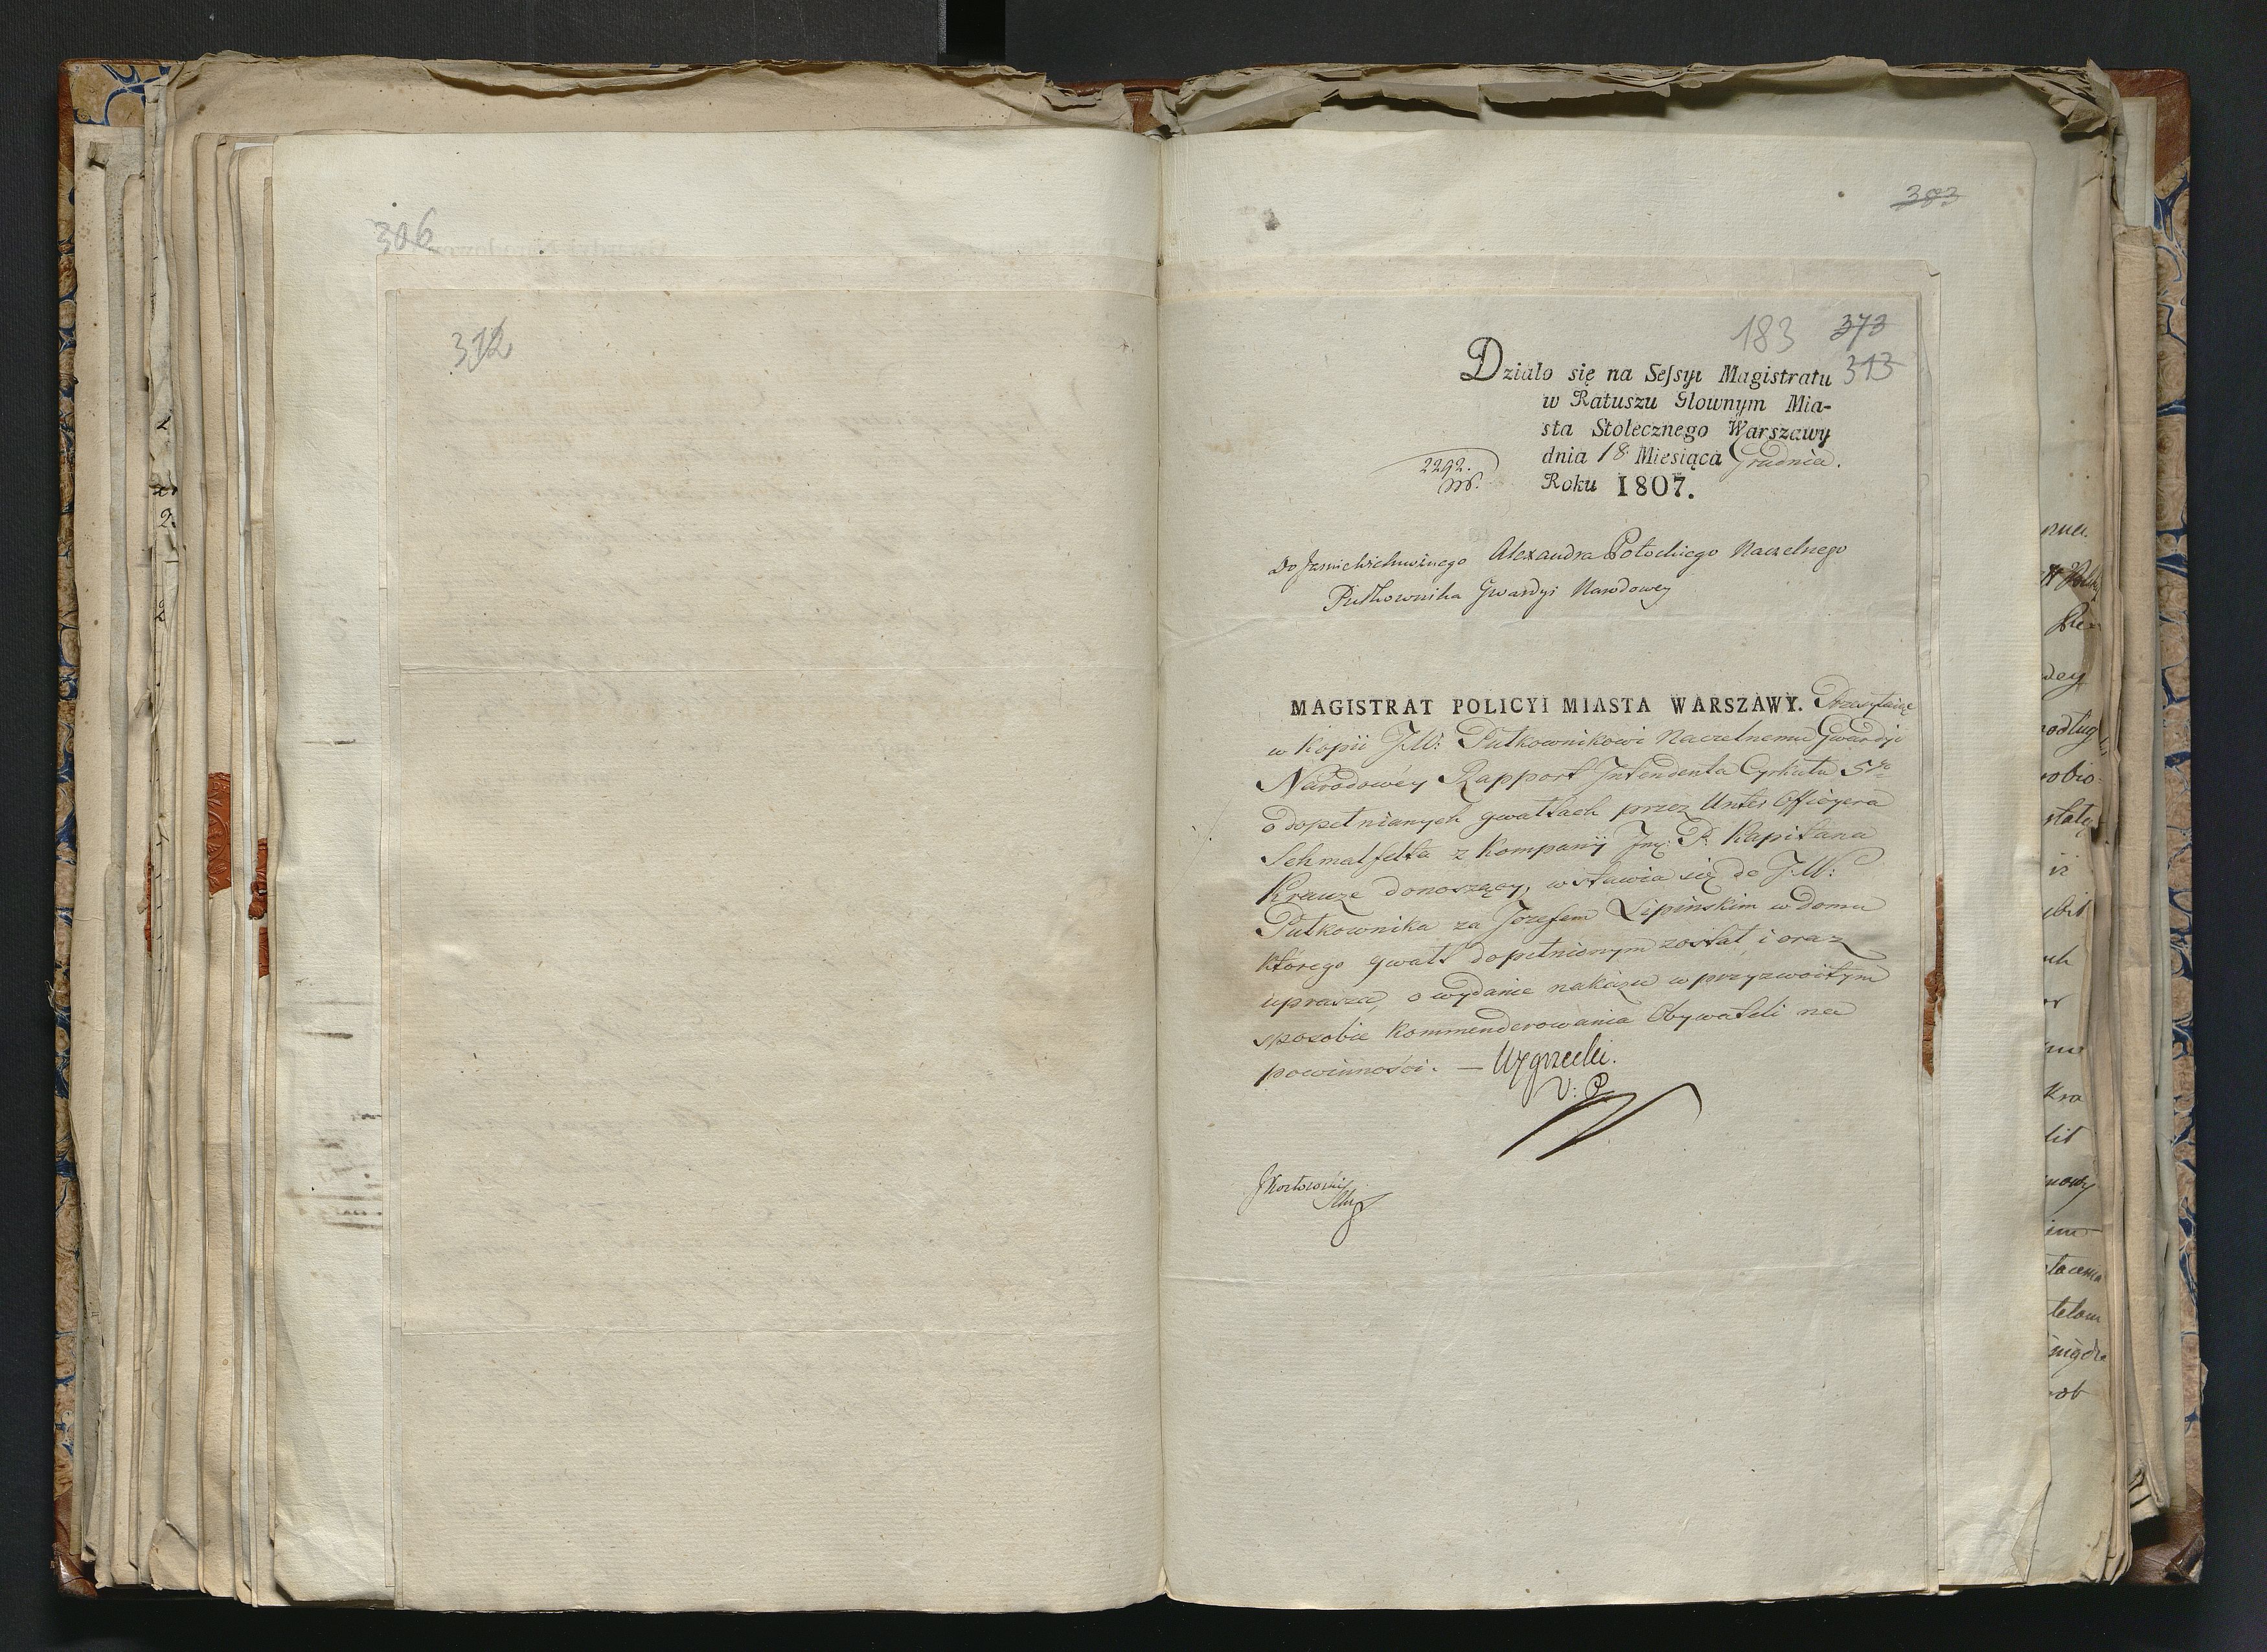 306
312
383
183 373
Działo się na Sessyi Magistratu 313
w Ratuszu Głownym Mia-
sta Stołecznego Warszawy
dnia 18 Miesiąca Grudnia.
2292.
Roku 1807.
Do Jaśnie Wielmożnego Alexandra Potockiego Naczelnego
Pułkownika Gwardyi Narodowey
MAGISTRAT POLICYI MIASTA WARSZAWY. Przesyłaiąc
w Kopii J.W: Pułkownikowi Naczelnemu Gwardyi
Narodowéy Rapport Intendenta Cyrkułu 5go
o dopełnianych gwałtach przez Unter Officyera
Schmalfelta z Kompanij Jmć P. Kapitana
Krauze donoszący, wstawia się do J.W:
Pułkownika za Jozefem Lipińskim w domu
ktorego gwałt dopełnionym został, i oraz
uprasza, o wydanie nakazu w przyzwoitym
sposobie kommenderowania Obywateli na
powinności. —
V: P.